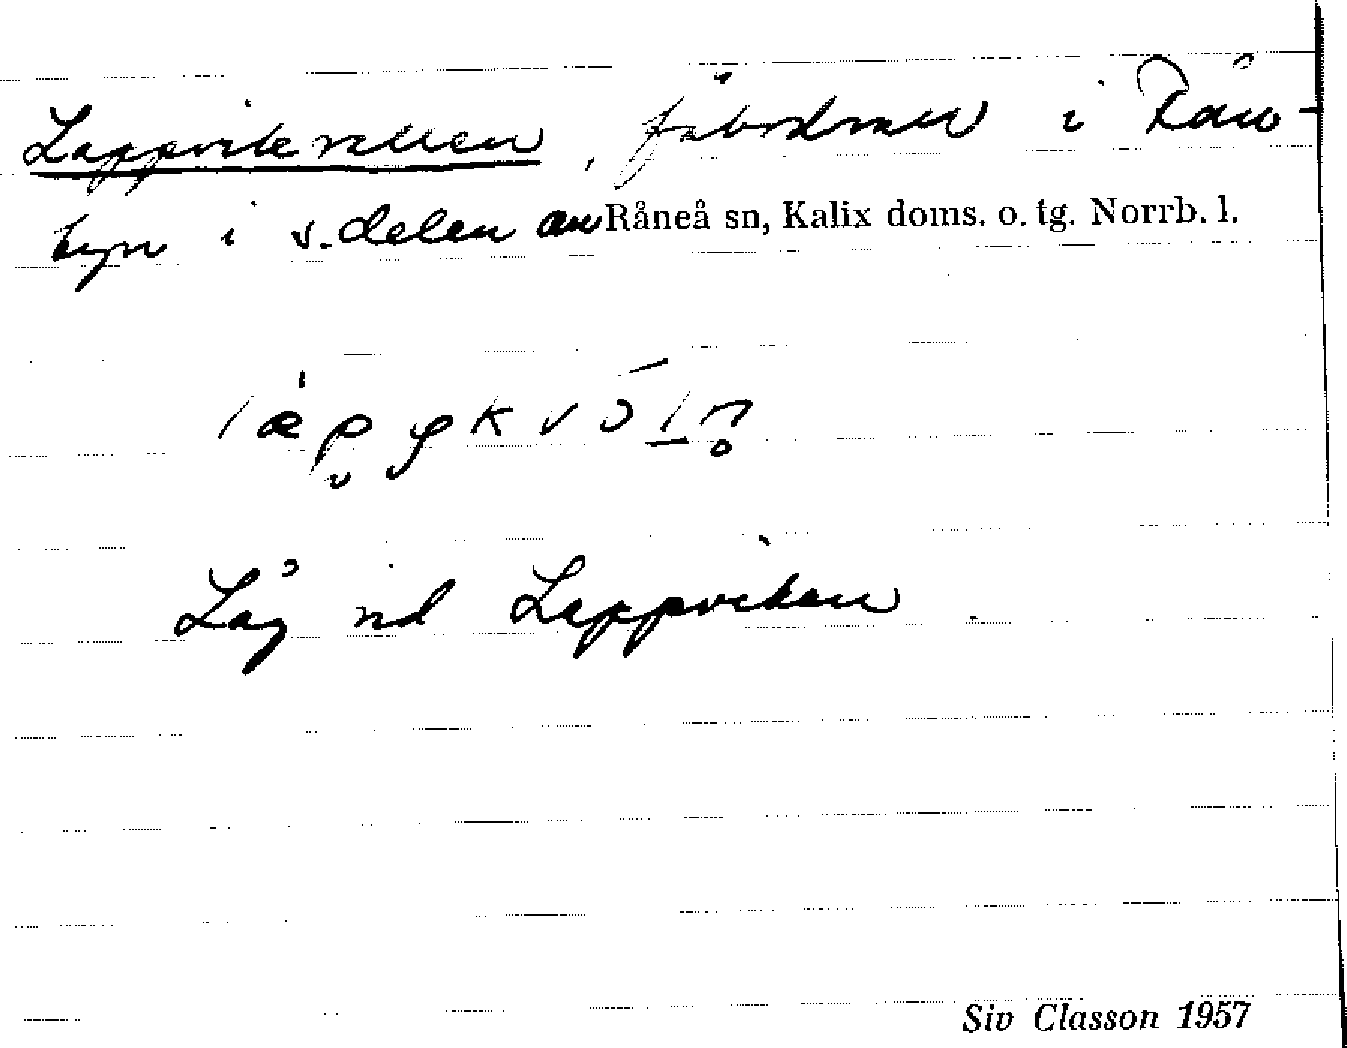 Lappviksvallen, fäbodvall i Rån-
byn i s. delen av Råneå sn, Kalix doms. o. tg. Norrb. l.
Låg vid Lappviken
Siv Classon 1957